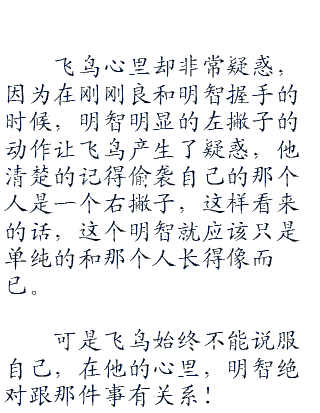 飞鸟心里却非常疑惑，
因为在刚刚良和明智握手的
时候，明智明显的左撇子的
动作让飞鸟产生了疑惑，他
清楚的记得偷袭自己的那个
人是一个右撇子，这样看来
的话，这个明智就应该只是
单纯的和那个人长得像而
已。
可是飞鸟始终不能说服
自己，在他的心里，明智绝
对跟那件事有关系！